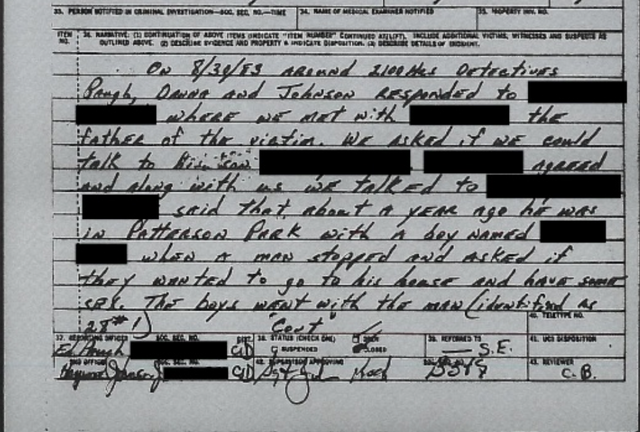 33. PERSON NOTIFIED IN CRIMINAL INVESTIGATION—SOC. SEC. NO.—TIME 34. NAME OF MEDICAL EXAMINER NOTIFIED 35. PROPERTY INV. NO.
ITEM NO. 36. NARRATIVE: (1) CONTINUATION OF ABOVE ITEMS (INDICATE "ITEM NUMBER" CONTINUED AT LEFT). INCLUDE ADDITIONAL VICTIMS, WITNESSES AND SUSPECTS AS
OUTLINED ABOVE. (2) DESCRIBE EVIDENCE AND PROPERTY & INDICATE DISPOSITION. (3) DESCRIBE DETAILS OF INCIDENT.
On 8/30/83 around 2100 Hrs Detectives
Pough, Danna and Johnson responded to
where we met with the
father of the victim. We asked if we could
talk to his son agreed
and along with us we talked to
said that about a year ago he was
in Patterson Park with a boy named
when a man stopped and asked if
they wanted to go to his house and have some
sex. The boys went with the man (identified as
28 # 1) "Cont" 40. TELETYPE NO.
37. REPORTING OFFICER SOC. SEC. NO. DIST. 38. STATUS (CHECK ONE) OPEN 39. REFERRED TO 41. UCR DISPOSITION
CID SUSPENDED CLOSED S.E.
2ND OFFICER SOC. SEC. NO. SUPERVISOR APPROVING 43. REVIEWER
CID Sgt C.B.